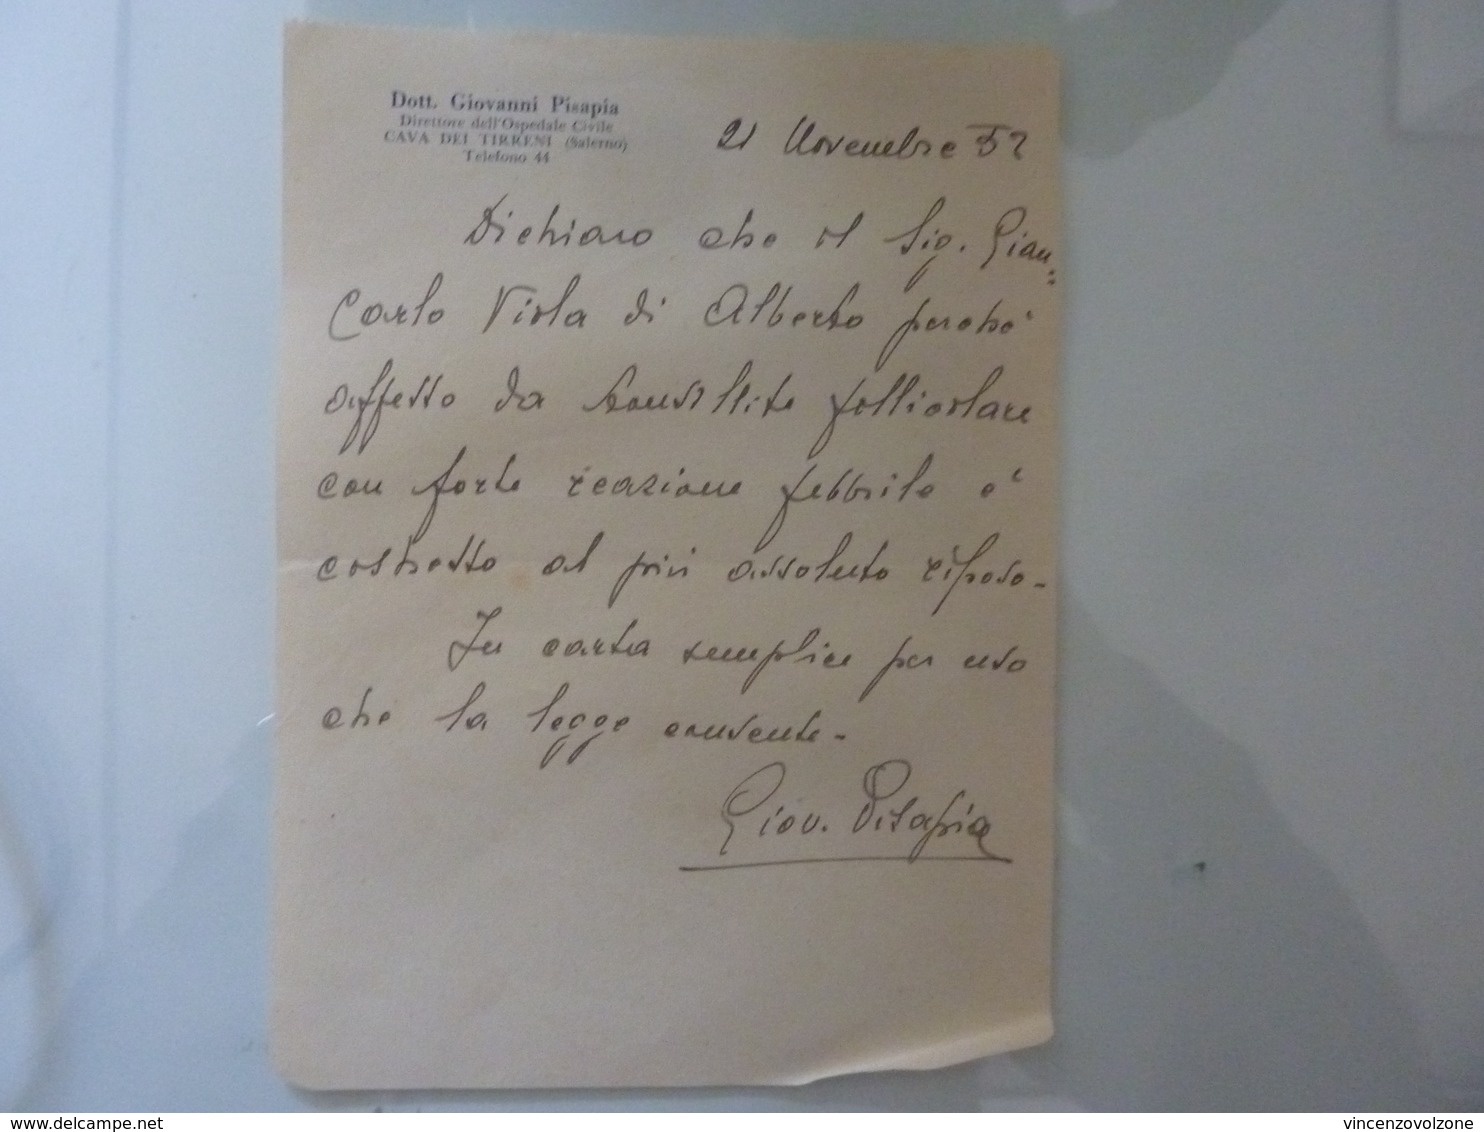 Dott. Giovanni Pisapia
Direttore dell'Ospedale Civile
CAVA DEI TIRRENI (Salerno)
Telefono 44
21 Novembre 52
Dichiaro che il Sig. Gian=
Carlo Viola di Alberto perché
affetto da tonsillite follicolare
con forte reazione febbrile è
costretto al più assoluto riposo -
In carta semplice per uso
che la legge consente -
Giov. Pisapia
vincenzovolzone